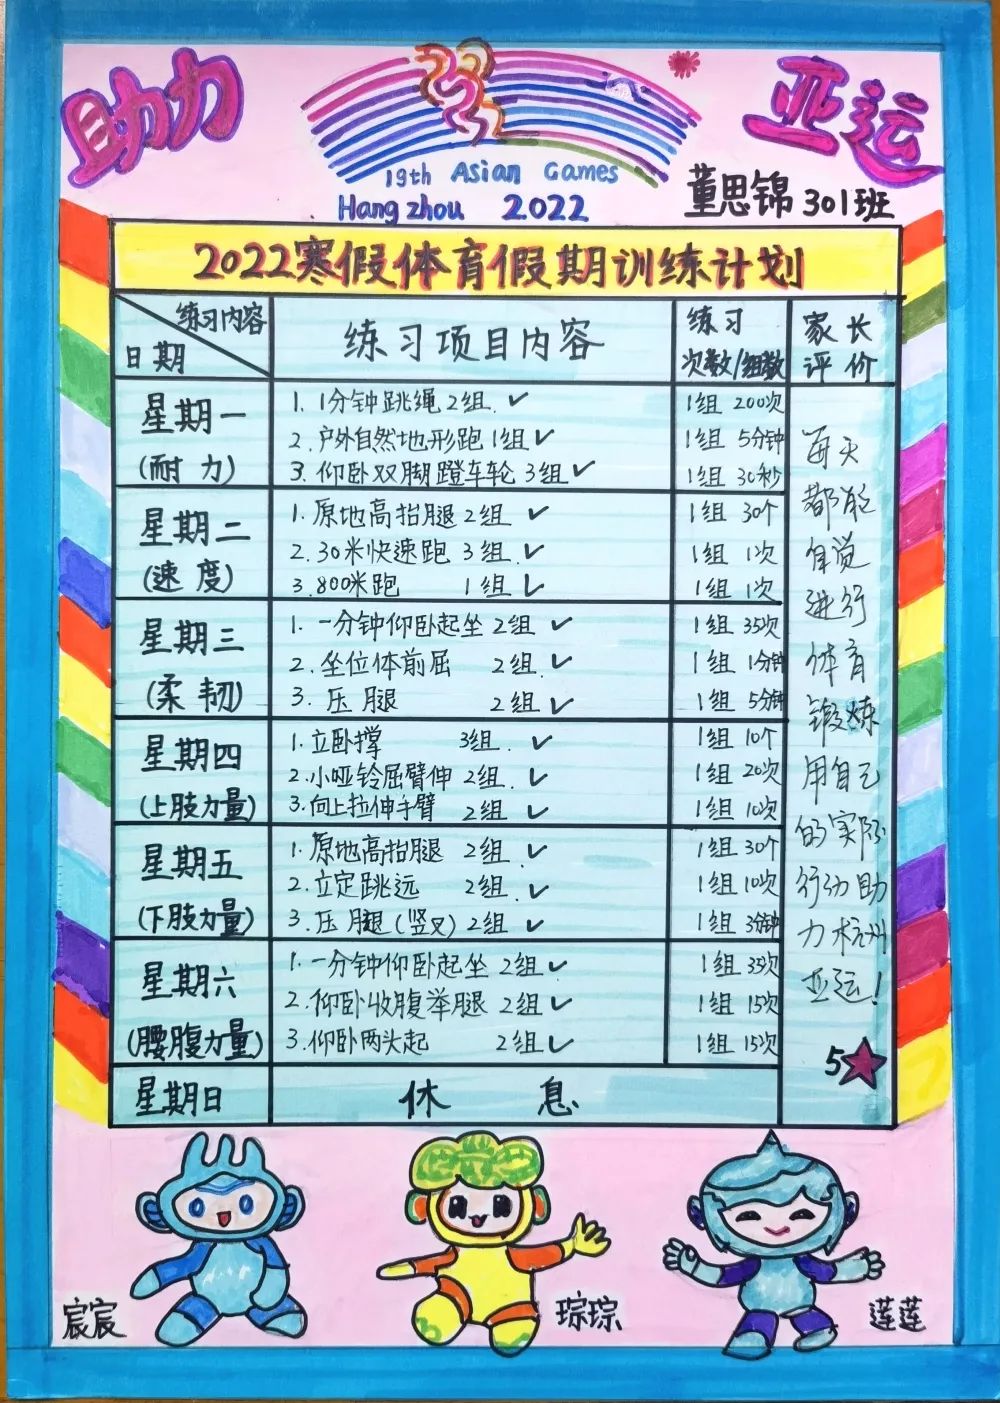 助力
亚运
19th Asian Games
Hangzhou 2022
董思锦301班
2022寒假体育假期训练计划
练习内容
日期
练习项目内容
练习
次数/组数
家长
评价
星期一
(耐力)
1. 1分钟跳绳2组. ✓
1组 200次
2. 户外自然地形跑1组✓
1组 5分钟
3. 仰卧双脚蹬车轮 3组✓
1组 30秒
星期二
(速度)
1. 原地高抬腿2组 ✓
1组 30个
2. 30米快速跑 3组. ✓
1组 1次
3. 800米跑 1组 ✓
1组 1次
星期三
(柔韧)
1. 一分钟仰卧起坐 2组. ✓
1组 35次
2. 坐位体前屈 2组. ✓
1组 1分钟
3. 压腿 2组. ✓
1组 5分钟
星期四
(上肢力量)
1. 立卧撑 3组. ✓
1组 10个
2. 小哑铃屈臂伸 2组. ✓
1组 20次
3. 向上拉伸手臂 2组. ✓
1组 10次
星期五
(下肢力量)
1. 原地高抬腿 2组. ✓
1组 30个
2. 立定跳远 2组. ✓
1组 10次
3. 压腿(竖叉) 2组 ✓
1组 3分钟
星期六
(腰腹力量)
1. 一分钟仰卧起坐 2组✓
1组 35次
2. 仰卧收腹举腿 2组✓
1组 15次
3. 仰卧两头起 2组✓
1组 15次
星期日
休息
每天
都能
自觉
进行
体育
锻炼
用自己
的实际
行动助
力杭州
亚运!
5★
宸宸
琮琮
莲莲